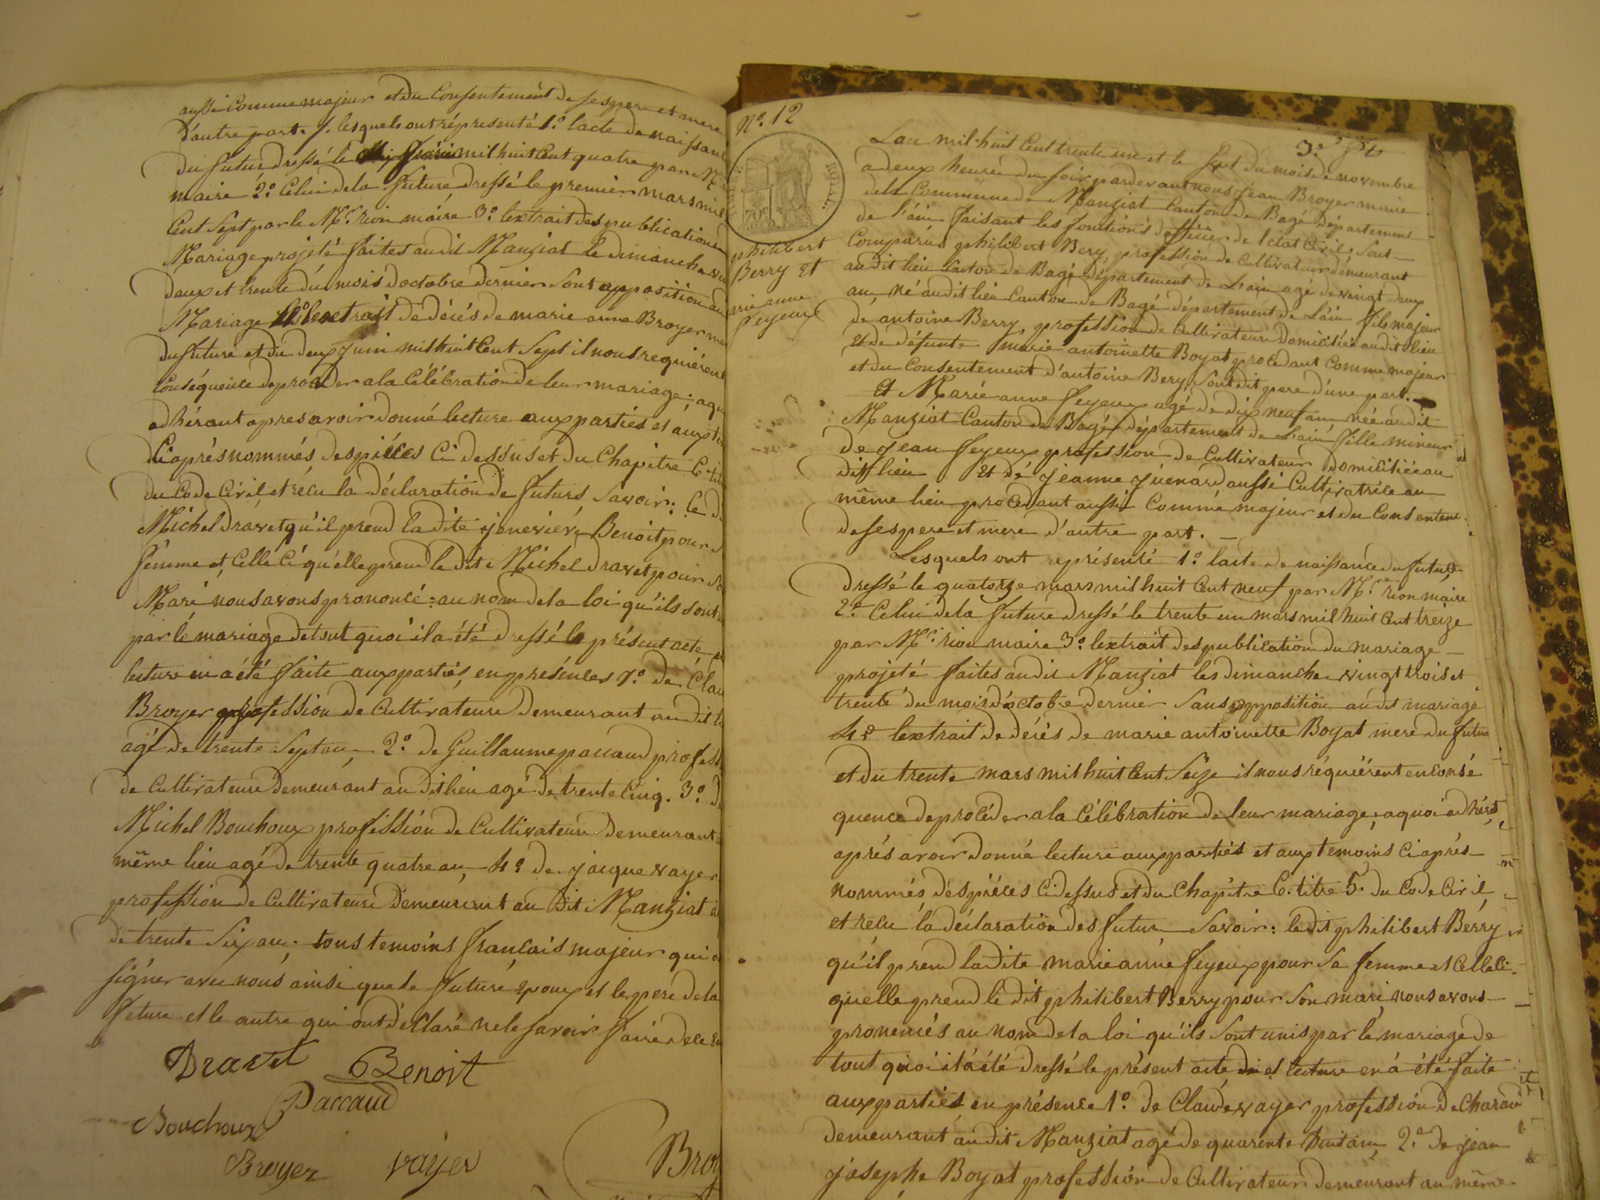 aussi comme majeur et du consentement de ses pere et mere
d'autre part. lesquels ont répresenté 1.º lacte de naissance
du futur dressé le mil huit cent quatre par Mr
maire 2.º Celui de la future dressé le premier mars mil
Cent Sept par le Mr. rion maire 3.º lextrait des publications
Mariage projeté faites audit Manziat le dimanche
deux et trente du mois doctobre dernier Sans opposition au
Mariage 4.º lextrait de décés de marie anne Broyer mere
du future et du deux juin mil huit Cent Sept il nous requiérent
Conséquence de procéder a la Célébration de leur mariage; a quoi
adhérant apres avoir donné lecture aux partiés et aux
Ciaprés nommés des piéces Ci dessus et du Chapitre 6. titre
du Code Civil et réçu la déclaration de futurs Savoir: le d
Michel dravet qu'il prend la dite jeneviéve Benoit pour
femme et Celle Ci qu'elle prend le dit Michel dravet pour
Mari nous avons prononcé au nom de la loi qu'ils sont
par lé mariage de tout quoi il a été dressé le présent acte
lecture en a été faite aux partiés, en présences 1.º de Clau
Broyer profession de Cultivateur demeurant audit
agé de trente Sept an, 2.º de Guillaume paccaud profess
de Cultivateur demeurant audit lieu agé de trente Cinq. 3.º d
Michel Bouchoux proféssion de Cultivateur demeurant
même lieu agé de trente quatre an, 4.º de jacque vayer
profession de Cultivateur demeurant au dit Manziat
de trente Six an. tous temoins français majeur qui
signer avec nous ainsi que le future epoux et le pere de la
future et le autre qui ont déclaré ne le savoir faire de ce
Dravet Benoit
Paccaud
Bouchoux
Broyer vayer
Broy
Nº. 12
philibert
Berry Et
marie anne
feyeux
Lan mil-huit Cent trente un et le Sept du mois de novembre
a deux heures du soir pardevant nous Jean Broyer maire
de la Commune de Manziat Canton de Bagé Département
de l'ain faisant les fonctions dofficier de letat Civil, Sont
Comparus philibert Bery, profession de Cultivateur demeurant
audit lieu Canton de Bagé département de Lain agé de vingt deux
an, né audit lieu Canton de Bagé département de Lain fils majeur
de antoine Berry, profession de Cultivateur domicilié audit lieu
et de défunte marie antoinette Boyat procédant Comme majeur
et du Consentement d'antoine Bery, Sondit pere d'une part.
Et Marie anne feyeux agé de dix neuf an née audit
Manziat Canton de Bagé département de Lain fille mineur
de Jean feyeux profession de Cultivateur domicilié au
dit lieu Et de Jeanne Guenard aussi Cultivatrice au
même lieu procédant aussi Comme majeur et du Consentem.
de ses pere et mere d'autre part.
Lesquels ont représenté 1.º lacte de naissance du futur
dressé le quatorze mars mil huit Cent neuf par Mr. rion maire
2.º Celui de la future dressé le trente un mars mil huit Cent treize
par Mr. rion maire 3.º lextrait des publication du mariage
projeté faites audit Manziat les dimanche vingt trois et
trente du mois d'octobre dernier Sans opposition audit mariage
4.º lextrait de décés de marie antoinette Boyat mere du futur
et du trente mars mil huit Cent Seize il nous réquiérent en consé
quence de procéder a la célébration de leur mariage, a quoi adhért,
aprés avoir donné lecture aux partiés et aux temoins Ci aprés
nommés des piéces Ci dessus et du Chapitre 6. titre 5. du Code Civil,
et réçu la déclaration des futur Savoir: ledit philibert Bérry
qu'il prend ladite marie anne feyeux pour Sa femme et Celle Ci
quelle prend le dit philibert Berry pour Son mari nous avons
prononcés au nom de la loi qu'ils Sont unis par le mariage de
tout quoi il a été dressé le présent acte et lecture en a été faite
aux partiés en présence 1.º de Claude vayer profession de Charon
demeurant audit Manziat agé de quarente huit an, 2.º de jean
josephe Boyat profession de Cultivateur demeurant au même